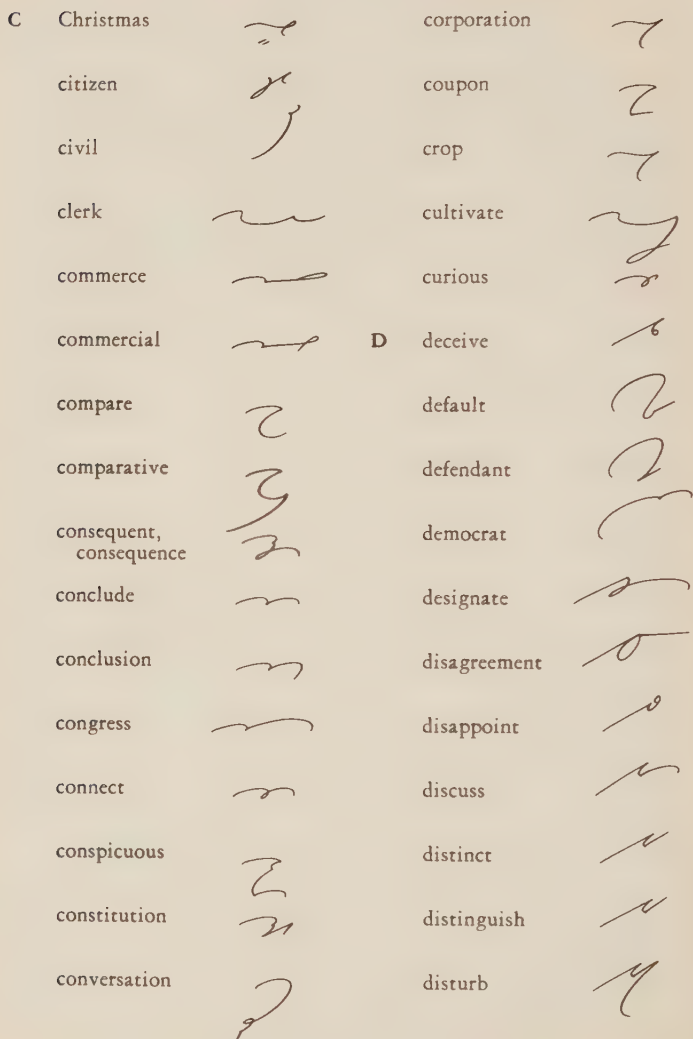 C Christmas
citizen
civil
clerk
commerce
commercial
compare
comparative
consequent,
consequence
conclude
conclusion
congress
connect
conspicuous
constitution
conversation
corporation
coupon
crop
cultivate
curious
D deceive
default
defendant
democrat
designate
disagreement
disappoint
discuss
distinct
distinguish
disturb